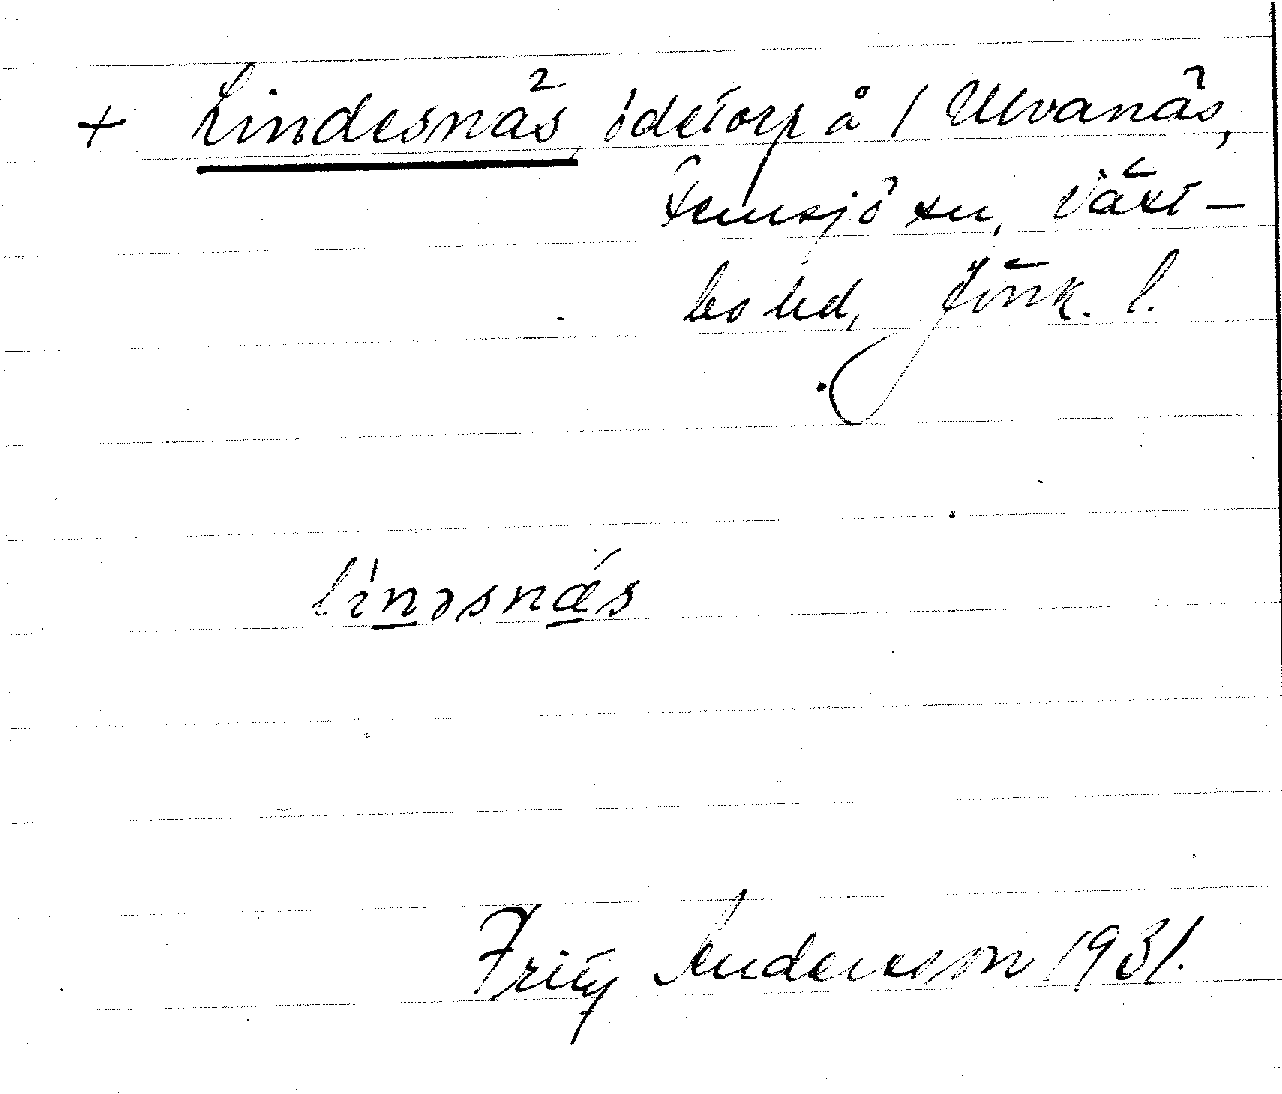 + Lindesnäs, ödetorp å 1 Ulvanäs,
Femsjö sn, Väst-
bo hd, Jönk. l.
linəsnæs
Fritz Andersson 1931.